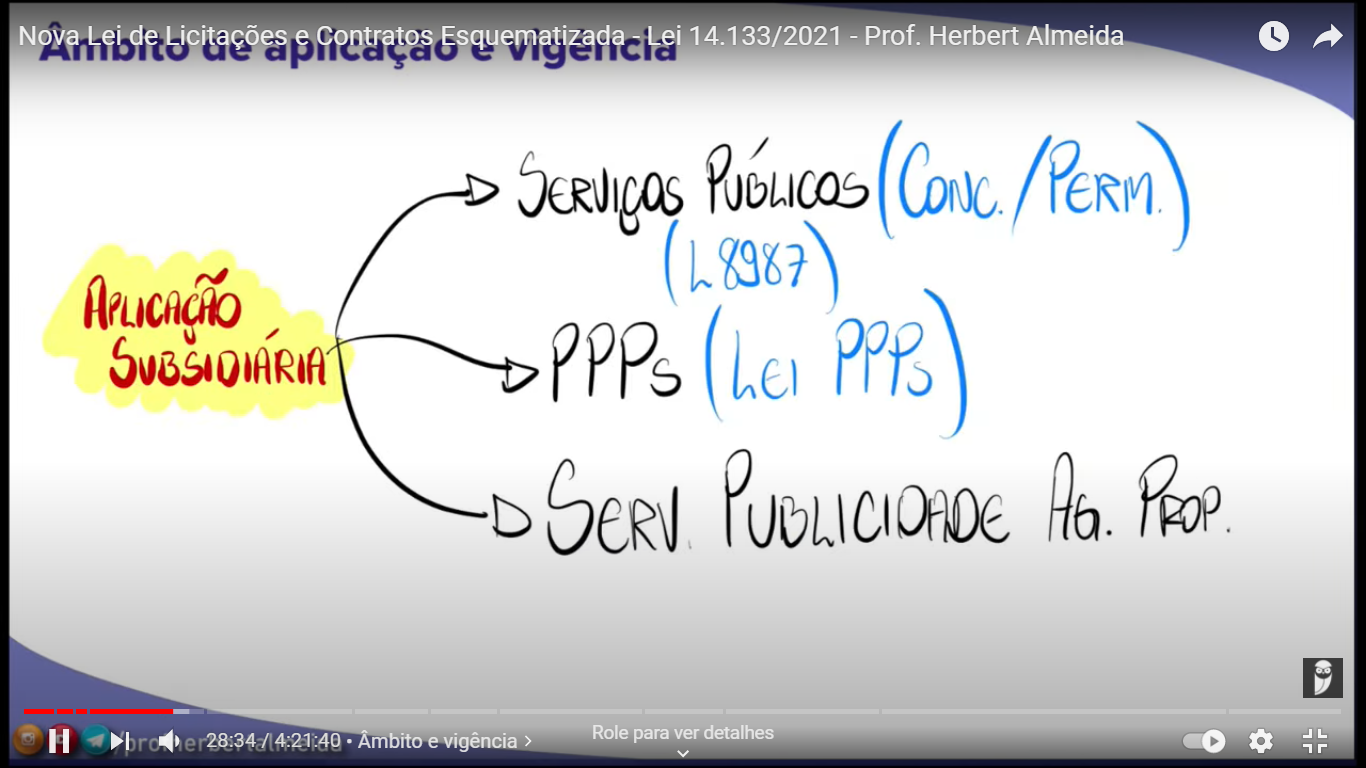 Nova Lei de Licitações e Contratos Esquematizada - Lei 14.133/2021 - Prof. Herbert Almeida
Âmbito de aplicação e vigência
SERVIÇOS PÚBLICOS (CONC./PERM.)
(L 8987)
APLICAÇÃO
SUBSIDIÁRIA
PPPs (LEI PPPs)
SERV. PUBLICIDADE AG. PROP.
28:34 / 4:21:40 • Âmbito e vigência
Role para ver detalhes